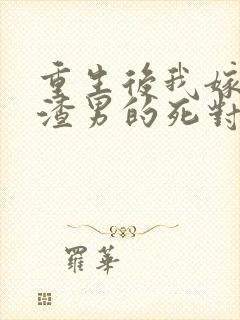 重生後我嫁
渣男的死對
羅華